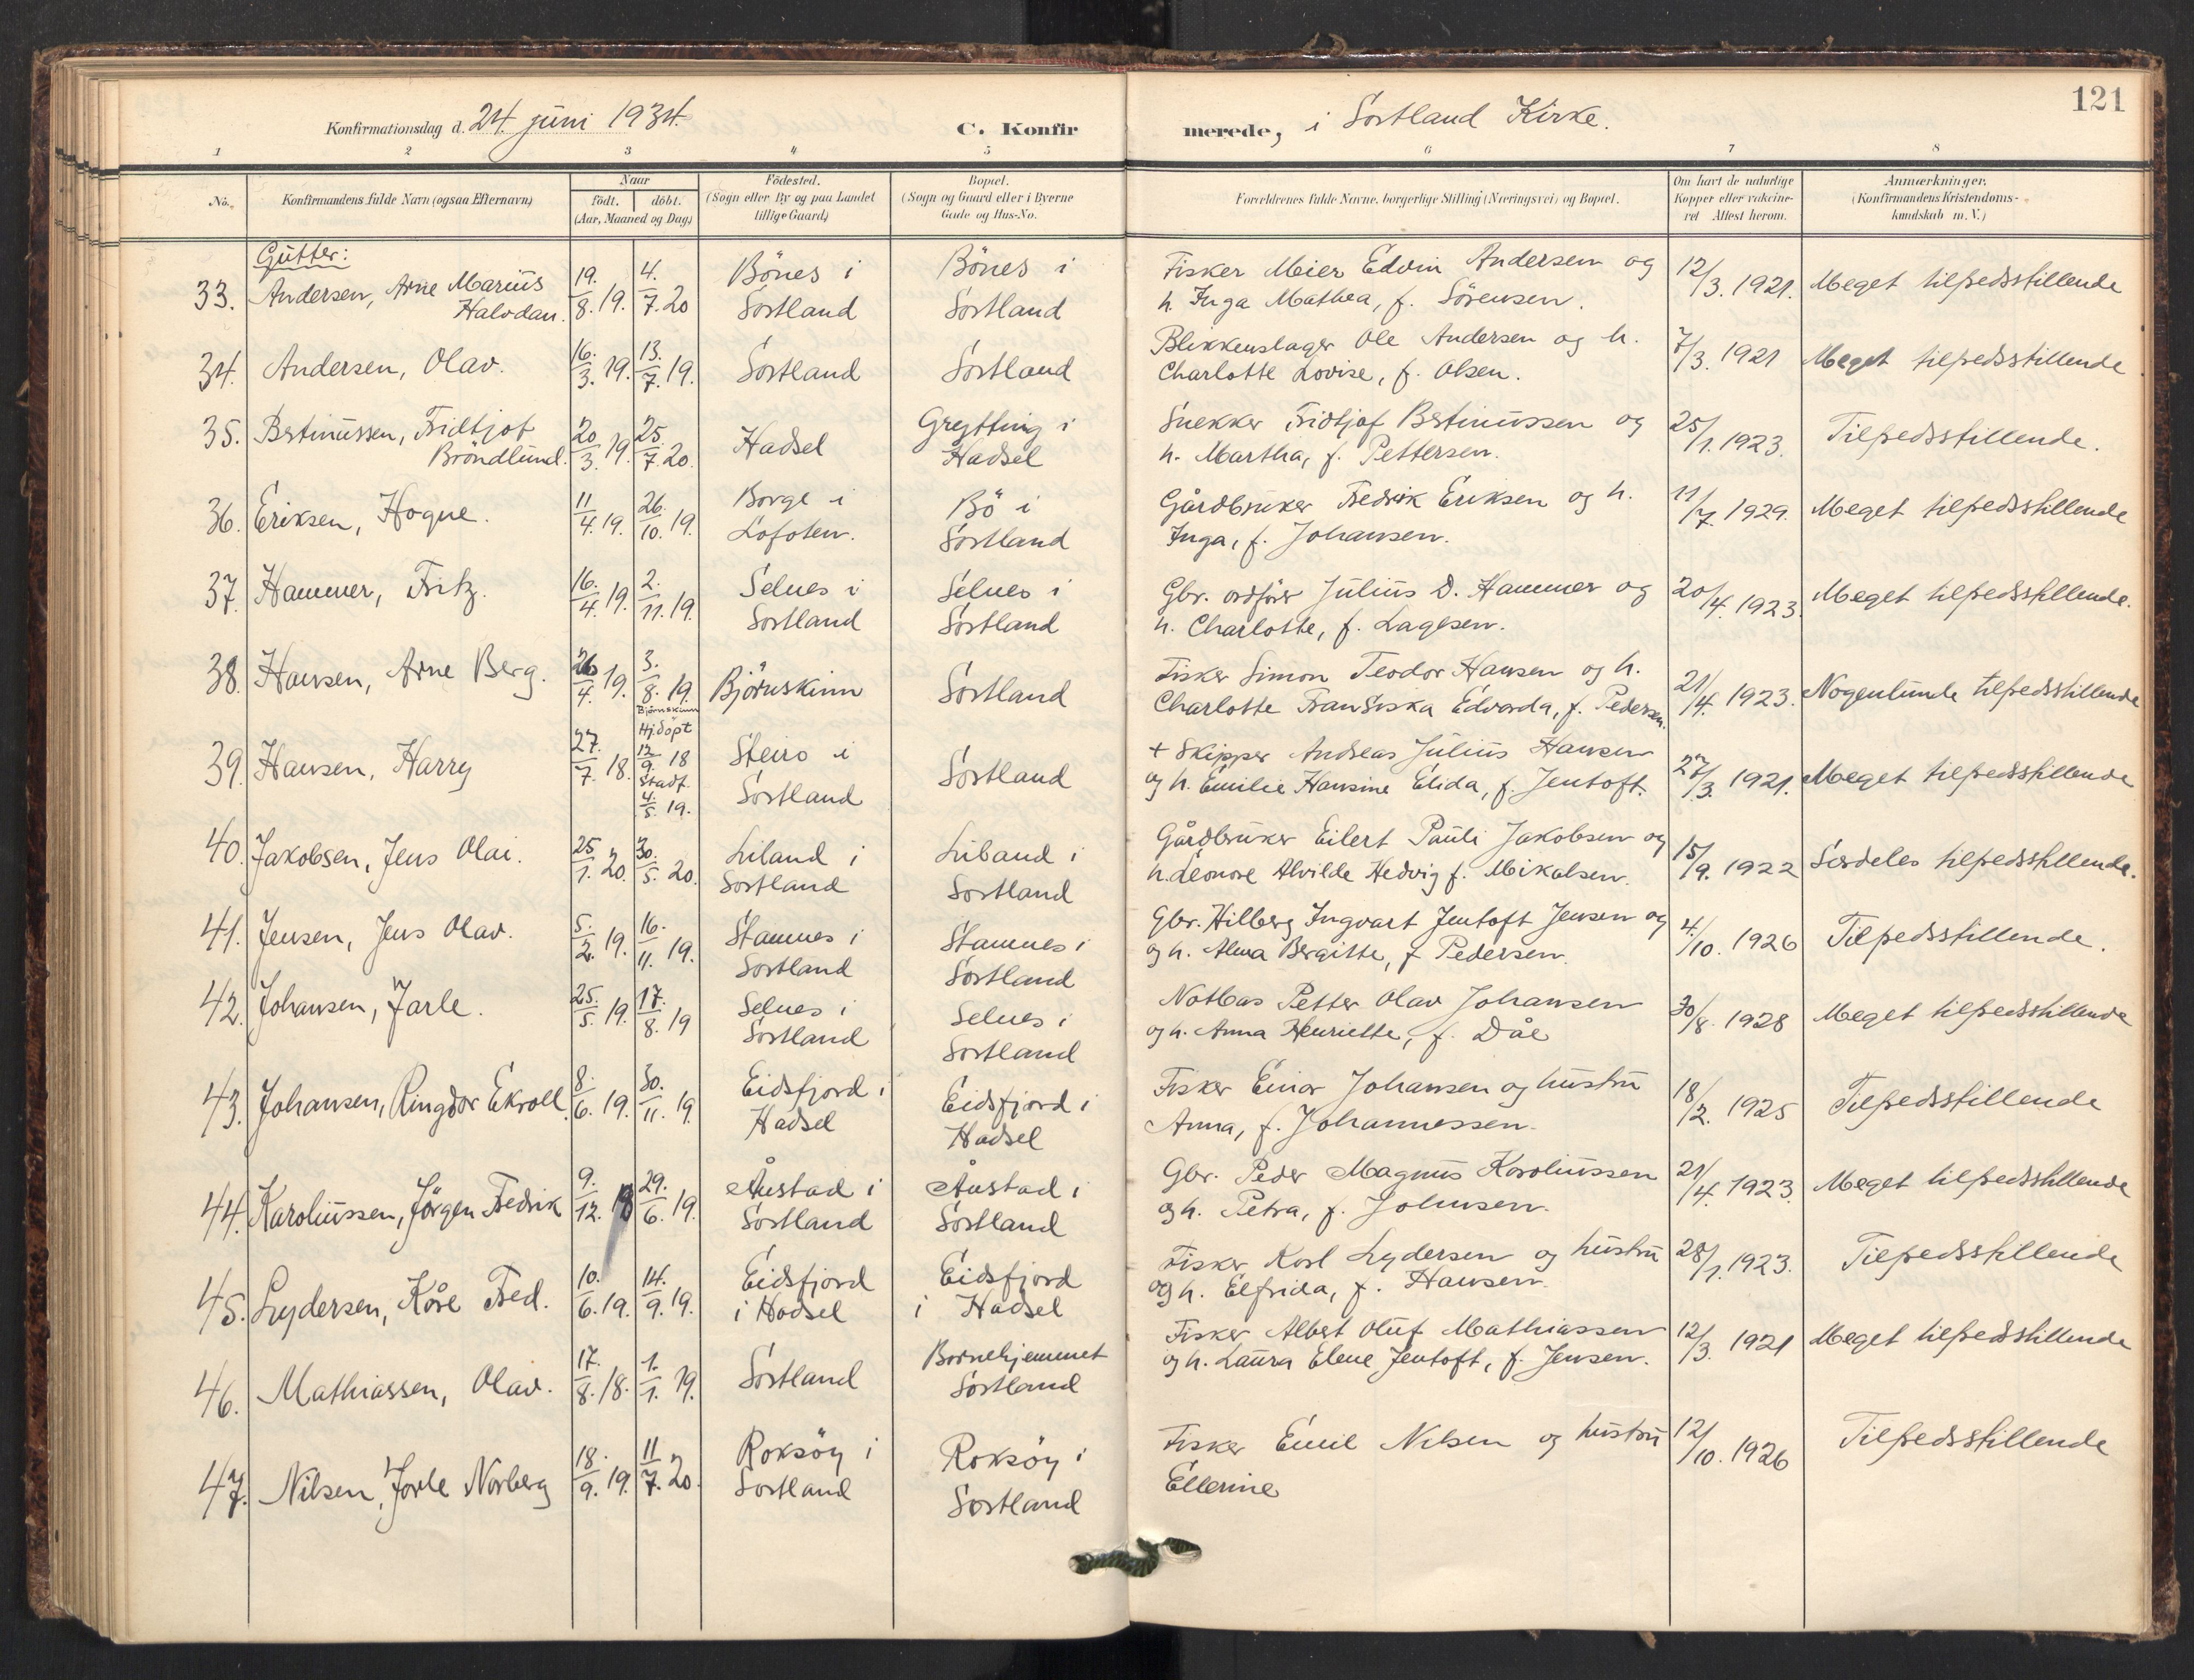 121
Konfirmationsdag d. 24. juni 1934. C. Konfirmerede, i Sortland Kirke.
1 2 3 4 5 6 7 8
No. Konfirmandens fulde Navn (ogsaa Efternavn) Naar født. døbt. (Aar, Maaned og Dag) Födested. (Sogn eller By og paa Landet tillige Gaard) Bopæl. (Sogn og Gaard eller i Byerne Gade og Hus-No. Forældrenes fulde Navne, borgerlige Stilling (Næringsvei) og Bopæl. Om havt de naturlige Kopper eller vakcineret Attest herom. Anmærkninger. (Konfirmandens Kristendomskundskab m. V.)
Gutter:
33. Andersen, Arne Marius Halvdan. 19./8. 19. 4./7. 20 Bönes i Sortland Bönes i Sortland Fisker Meier Edvin Andersen og h. Inga Mathea, f. Sörensen. 12/3. 1921. Meget tilfredsstillende
34. Andersen, Olav. 16./3. 19. 13./7. 19. Sortland Sortland Blikkenslager Ole Andersen og h. Charlotte Lovise, f. Olsen. 7/3. 1921 Meget tilfredsstillende
35. Bertinussen, Fridtjof Bröndlund. 20/3. 19. 25./7. 20. Hadsel Grytting i Hadsel Snekker Fridtjof Bertinussen og h. Martha, f. Pettersen. 25/1. 1923. Tilfredsstillende.
36. Eriksen, Hogne. 11/4. 19. 26./10. 19. Borge i Lofoten. Bö i Sortland Gårdbruker Fredrik Eriksen og h. Inga, f. Johansen. 11/7. 1929. Meget tilfredsstillende
37. Hammer, Fritz. 16./4. 19. 2./11. 19. Selnes i Sortland Selnes i Sortland Gbr. ordförer Julius D. Hammer og h. Charlotte, f. Lagesen. 20/4. 1923. Meget tilfredsstillende.
38. Hansen, Arne Berg. 26/4. 19. 3./8. 19. Björnskinn Björnskinn Sortland Fisker Simon Teodor Hansen og h. Charlotte Fransiska Edvarda, f. Pedersen. 21/4. 1923. Nogenlunde tilfredsstillende
39. Hansen, Harry 27./7. 18. Hj.döpt 12/9. 18 Stadf. 4./5. 19. Steiro i Sortland Sortland + Skipper Andreas Julius Hansen og h. Emilie Hansine Elida, f. Jentoft. 27/3. 1921. Meget tilfredsstillende
40. Jakobsen, Jens Olai. 25/1. 20. 30./5. 20. Liland i Sortland Liland i Sortland Gårdbruker Eilert Pauli Jakobsen og h. Leonore Alvilde Hedvig f. Mikalsen. 15/9. 1922 Særdeles tilfredsstillende.
41. Jensen, Jens Olav. 5./2. 19. 16./11. 19. Stamnes i Sortland Stamnes i Sortland Gbr. Hilberg Ingvart Jentoft Jensen og og h. Alma Bergitte, f. Pedersen. 4./10. 1926 Tilfredsstillende.
42. Johansen, Jarle. 25./5. 19. 17./8. 19 Selnes i Sortland Selnes i Sortland Notbas Petter Olav Johansen og h. Anna Henriette, f. Dåe 30/8. 1928 Meget tilfredsstillende
43. Johansen, Ringdor Ekroll. 8./6. 19. 30./11. 19. Eidsfjord i Hadsel Eidsfjord i Hadsel Fisker Einar Johansen og hustru Anna, f. Johannessen. 18/2. 1925 Tilfredsstillende
44. Karoliussen, Jörgen Fredrik 9./12. 18 29./6. 19. Åustad i Sortland Åustad i Sortland Gbr. Peder Magnus Karoliussen og h. Petra, f. Johnsen. 21/4. 1923. Meget tilfredsstillende
45. Lydersen, Kåre Fred. 10./6. 19. 14./9. 19. Eidsfjord i Hadsel Eidsfjord i Hadsel Fisker Karl Lydersen og hustru og h. Elfrida, f. Hansen. 28/1. 1923. Tilfredsstillende
46. Mathiassen, Olav. 17./8. 18. 1./1. 19. Sortland Barnehjemmet Sortland Fisker Albert Oluf Mathiassen og h. Laura Elene Jentoft, f. Jensen. 12/3. 1921 Meget tilfredsstillende
47. Nilsen, Jarle Norberg 18./9. 19. 11/7. 20. Roksöy i Sortland Roksöy i Sortland Fisker Emil Nilsen og hustru Ellerine 12/10. 1926 Tilfredsstillende